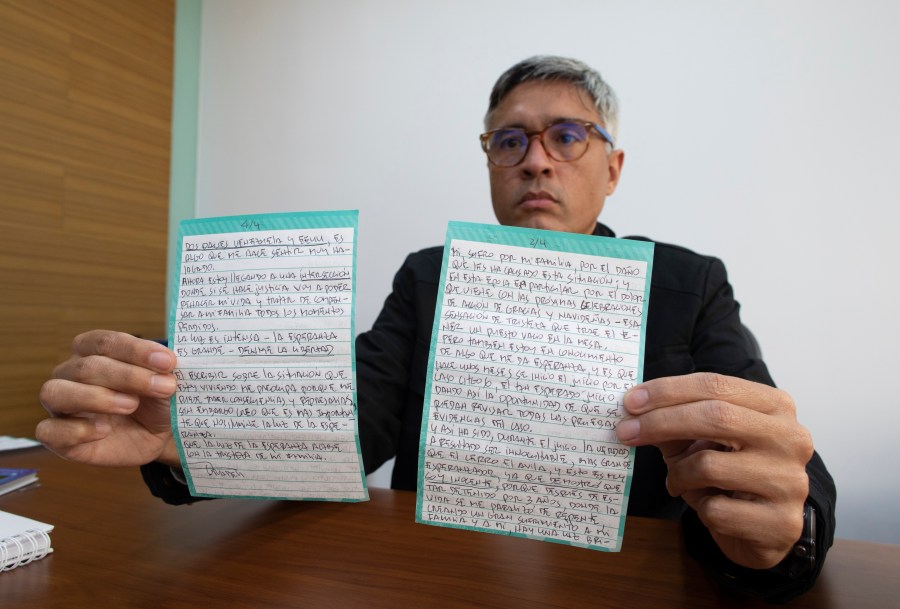 4/4
DOS PAISES VENEZUELA Y EEUU, ES
ALGO QUE ME HACE SENTIR MUY HA-
LAGADO.
AHORA ESTOY LLEGANDO A UNA INTERSECCION
DONDE SI SE HACE JUSTICIA VOY A PODER
REHACER MI VIDA Y TRATAR DE COMPEN-
SAR A MI FAMILIA TODOS LOS MOMENTOS
PERDIDOS.
LA LUZ ES INTENSA - LA ESPERANZA
ES GRANDE - DENME LA LIBERTAD
EL ESCRIBIR SOBRE LA SITUACION QUE
ESTOY VIVIENDO ME PREOCUPA PORQUE ME
PUEDE TRAER CONSECUENCIAS Y REPRESALIAS
SIN EMBARGO CREO QUE ES MAS IMPORTAN-
TE QUE NOS ILUMINE LA LUZ DE LA ESPE-
RANZA.
QUE LA LUZ DE LA ESPERANZA ACABE
CON LA TRISTEZA DE MI FAMILIA.
2/4
MI, SUFRO POR MI FAMILIA, POR EL DAÑO
QUE LES HA CAUSADO ESTA SITUACION Y
EN ESTA EPOCA EN PARTICULAR POR EL DOLOR
QUE VIENE CON LAS PROXIMAS CELEBRACIONES
DE ACCION DE GRACIAS Y NAVIDEÑAS - ESA
SENSACION DE TRISTEZA QUE TRAE EL TE-
NER UN PUESTO VACIO EN LA MESA.
PERO TAMBIEN ESTOY EN CONOCIMIENTO
DE ALGO QUE ME DA ESPERANZA, Y ES QUE
HACE UNOS MESES SE INICIO EL JUICIO POR EL
CASO CITGO 6, EL TAN ESPERADO JUICIO
DANDO ASI LA OPORTUNIDAD DE QUE SE
PUEDAN REVISAR TODAS LAS PRUEBAS Y
EVIDENCIAS DEL CASO.
Y ASI HA SIDO, DURANTE EL JUICIO LA VERDAD
A RESULTADO SER INOCULTABLE, MAS GRANDE
QUE EL CERRO EL AVILA, Y ESTO ES MUY
ESPERANZADOR, YA QUE DEMOSTRE QUE
SOY INOCENTE, PORQUE DESPUES DE ES-
TAR DETENIDO POR 3 AÑOS, DONDE LA
VIDA SE ME PARALIZO DE REPENTE
CREANDO UN GRAN SUFRIMIENTO A MI
FAMILIA Y A MI, HAY UNA LUZ BRI-